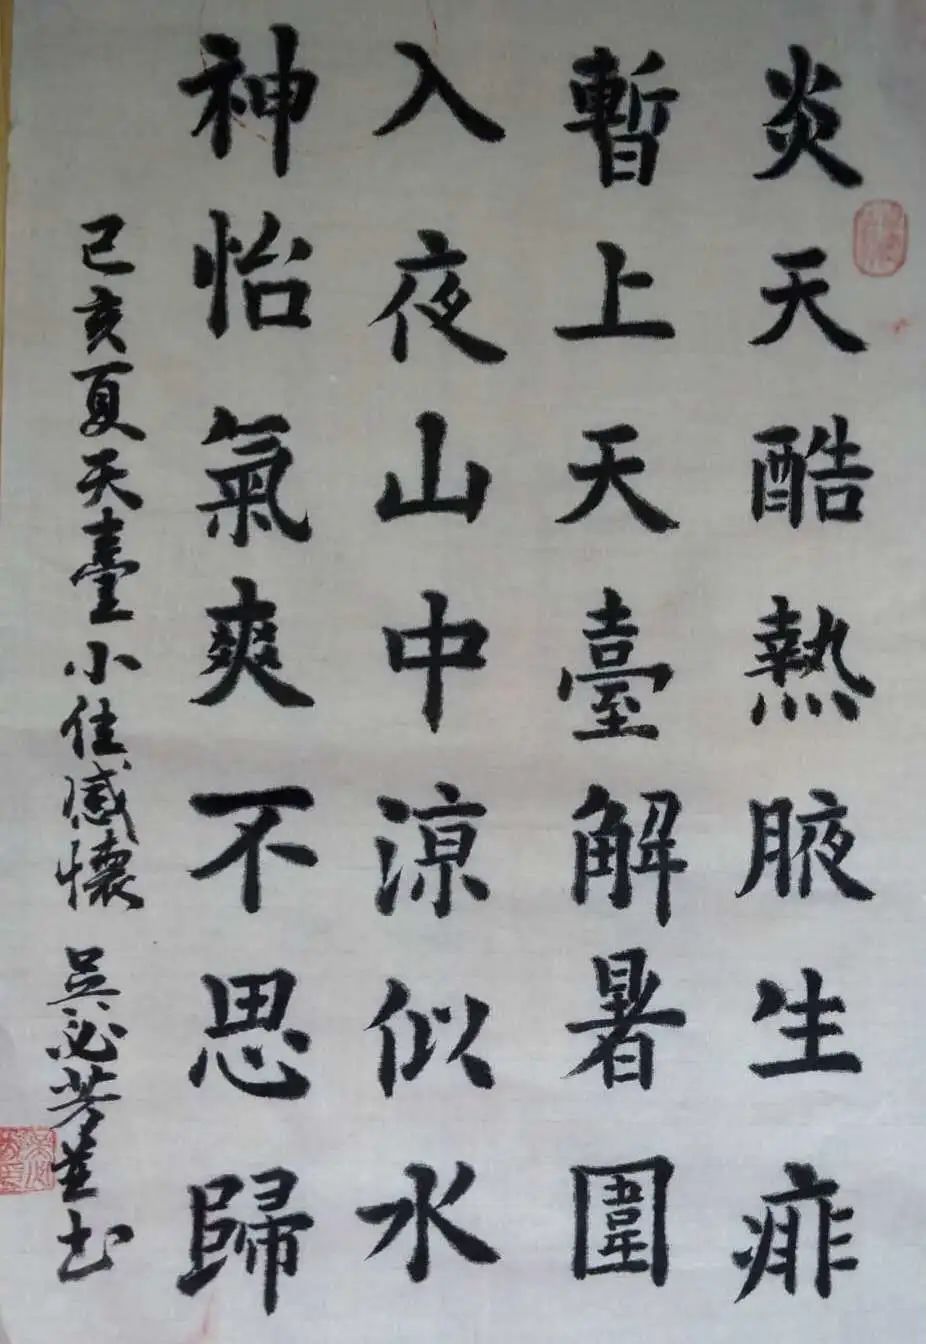 炎天酷熱腋生痱
暫上天臺解暑圍
入夜山中涼似水
神怡氣爽不思歸
己亥夏天臺小住感懷 吳必芳並书